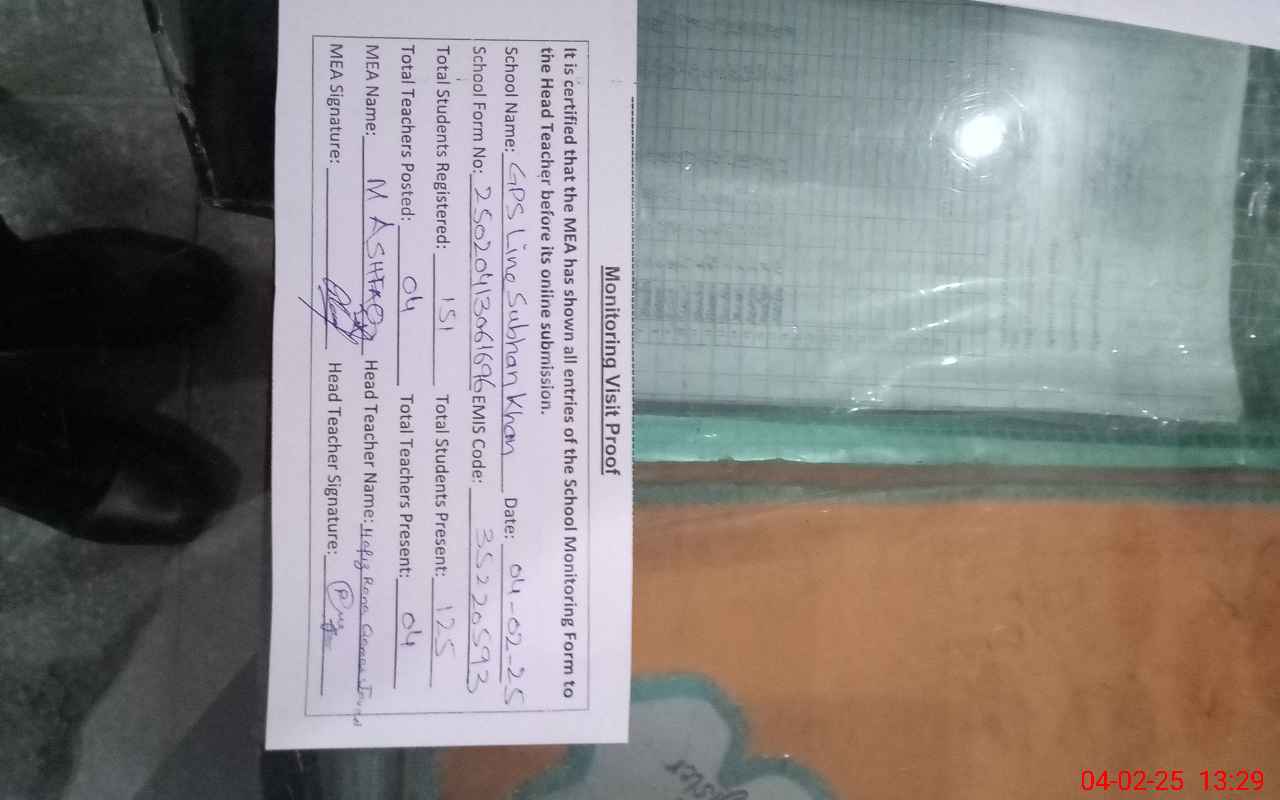 Monitoring Visit Proof
It is certified that the MEA has shown all entries of the School Monitoring Form to
the Head Teacher before its online submission.
School Name: GPS Line Subhan Khan Date: 04-02-25
School Form No: 25020413061696 EMIS Code: 35220593
Total Students Registered: 151 Total Students Present: 125
Total Teachers Posted: 04 Total Teachers Present: 04
MEA Name: M ASHFAQ Head Teacher Name: Hafiz Rana
MEA Signature: Head Teacher Signature:
04-02-25 13:29